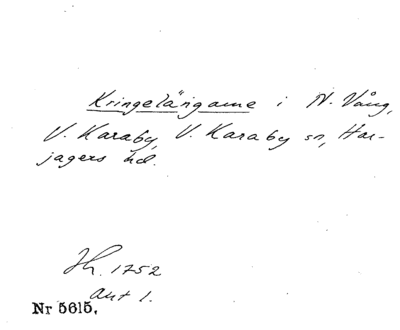 Kringelängarne i N. Vång,
V. Karaby, V. Karaby sn, Har-
jagers hd.
Jh. 1752
akt 1.
Nr 5615.